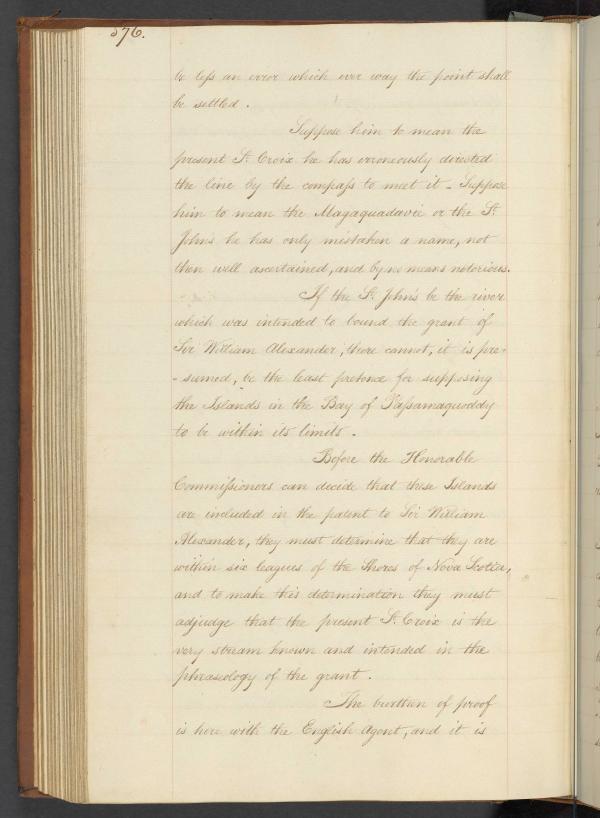 376.
to less an error which ever way the point shall
be settled.
Suppose him to mean the
present St. Croix he has erroneously directed
the line by the compass to meet it - Suppose
him to mean the Magaquadavic or the St.
John's he has only mistaken a name, not
then well ascertained, and by no means notorious.
If the St. John's be the river
which was intended to bound the grant of
Sir William Alexander, there cannot, it is pre-
-sumed, be the least pretence for supposing
the Islands in the Bay of Passamaquoddy
to be within its limits.
Before the Honorable
Commissioners can decide that these Islands
are included in the patent to Sir William
Alexander, they must determine that they are
within six leagues of the Shores of Nova Scotia,
and to make this determination they must
adjudge that the present St. Croix is the
very stream known and intended in the
phraseology of the grant.
The burthen of proof
is here with the English Agent, and it is